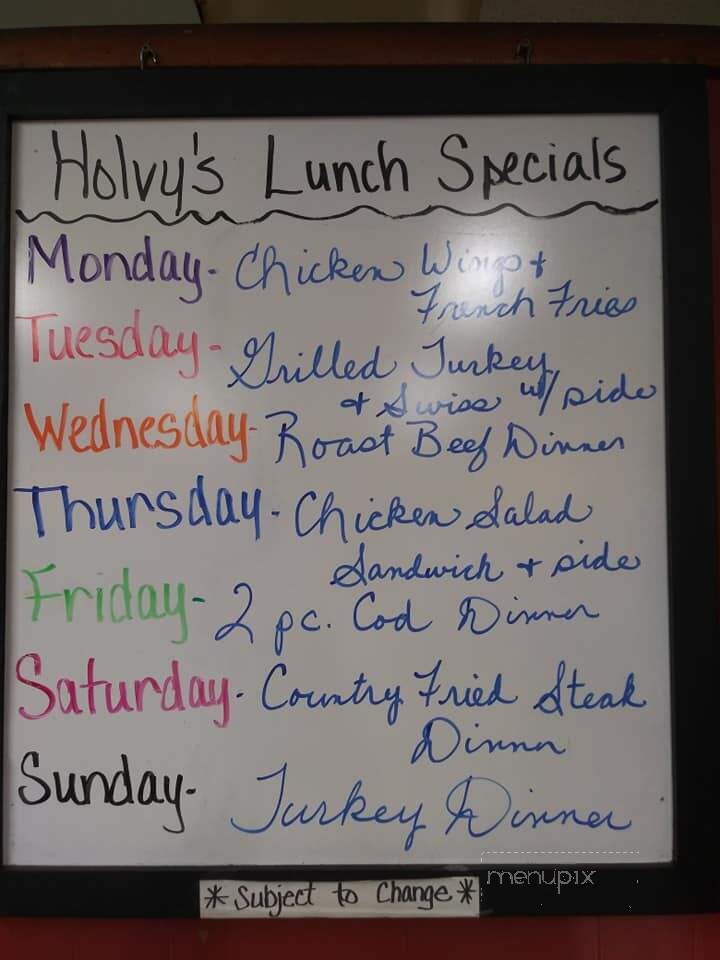 Holvy's Lunch Specials
Monday- Chicken Wings +
French Fries
Tuesday- Grilled Turkey
+ Swiss w/ side
Wednesday- Roast Beef Dinner
Thursday- Chicken Salad
Sandwich + side
Friday- 2 pc. Cod Dinner
Saturday- Country Fried Steak
Dinner
Sunday- Turkey Dinner
*Subject to Change*
menupix